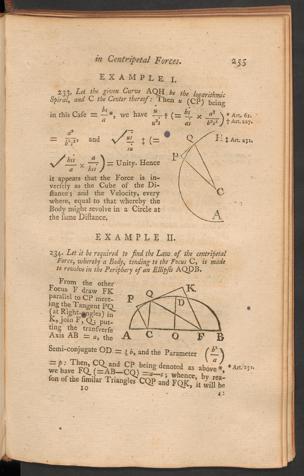 in Centripetal Forces.
235
EXAMPLE I.
233. Let the given Curve AQH be the logarithmic
Spiral, and C the Center thereof: Then u (CP) being
in this Case = we have
* Art. 61.
† Art. 227.
and
‡ Art. 231.
= Unity. Hence
it appears that the Force is in-
versely as the Cube of the Di-
stance; and the Velocity, every
where, equal to that whereby the
Body might revolve in a Circle at
the same Distance.
Q
H
P
C
A
EXAMPLE II.
234. Let it be required to find the Law of the centripetal
Force, whereby a Body, tending to the Focus C, is made
to revolve in the Periphery of an Ellipsis AQDB.
From the other
Focus F draw FK
parallel to CP meet-
ing the Tangent PQ
(at Right-angles) in
K, join F, Q; put-
ting the tranſverſe
Axis AB = a, the
P
Q
K
D
A C O F B
Semi-conjugate OD = ½ b, and the Parameter
= p: Then, CQ and CP being denoted as above *,
* Art. 231.
we have FQ (=AB—CQ) =a—s; whence, by rea-
son of the similar Triangles CQP and FQK, it will be
10